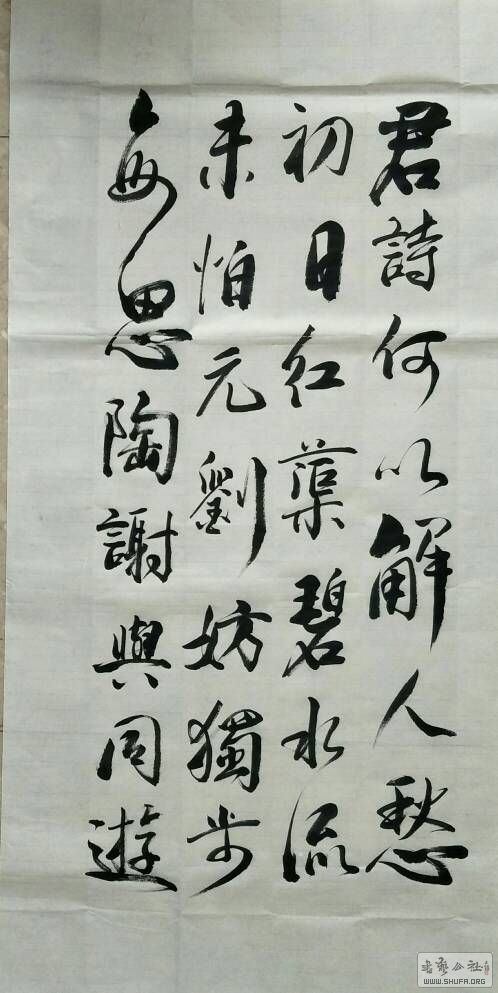 君詩何以解人愁
初日紅蕖碧水流
未怕元劉妨獨步
每思陶謝與同遊
書藝公社
WWW.SHUFA.ORG